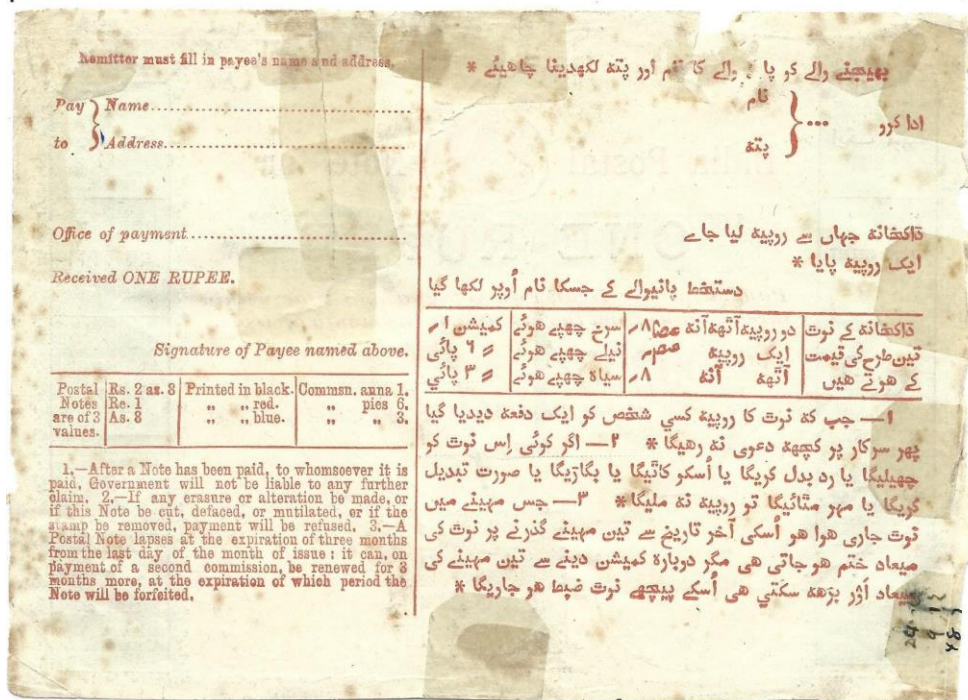 Remitter must fill in payee's name and address.
Pay to } Name
Address
Office of payment
Received ONE RUPEE.
Signature of Payee named above.
Postal Notes are of 3 values. | Rs. 2 as. 8 | Printed in black. | Commsn. anna 1.
Re. 1 | „ „ red. | „ pies 6.
As. 8 | „ „ blue. | „ „ 3.
1.—After a Note has been paid, to whomsoever it is
paid, Government will not be liable to any further
claim. 2.—If any erasure or alteration be made, or
if this Note be cut, defaced, or mutilated, or if the
stamp be removed, payment will be refused. 3.—A
Postal Note lapses at the expiration of three months
from the last day of the month of issue: it can, on
payment of a second commission, be renewed for 3
months more, at the expiration of which period the
Note will be forfeited.
بھیجنے والے کو والے کا نام اور پتہ لکھدینا چاھیئے *
ادا کرو ... { نام
پتہ
ڈاکخانہ جہاں سے روپیہ لیا جاے
ایک روپیہ پایا *
دستخط پانیوالے کے جسکا نام اُوپر لکھا گیا
ڈاکخانہ کے نوٹ | دو روپیہ آٹھہ آنہ | سرخ چھپے ھوئے | کمیشن ۱؍
تین طرح کی قیمت | ایک روپیہ | نیلے چھپے ھوئے | 〃 ۶ پائی
کے ھوتے ھیں | آٹھہ آنہ ۸؍ | سیاہ چھپے ھوئے | 〃 ۳ پائي
۱— جب کہ نوٹ کا روپیہ کسي شخص کو ایک دفعہ دیدیا گیا
پھر سرکار پر کچھہ دعوی نہ رھیگا * ۲— اگر کوئی اِس نوٹ کو
چھیلیگا یا رد بدل کریگا یا اُسکو کاٹیگا یا بگاڑیگا یا صورت تبدیل
کریگا یا مہر مٹائیگا تو روپیہ نہ ملیگا * ۳— جس مہینے میں
نوٹ جاری ھوا ھو اُسکی آخر تاریخ سے تین مہینے گذرنے پر نوٹ کی
میعاد ختم ھو جاتی ھی مگر دوبارہ کمیشن دینے سے تین مہینے کی
میعاد اَوْر بڑھہ سکتي ھی اُسکے پیچھے نوٹ ضبط ھو جاریگا *